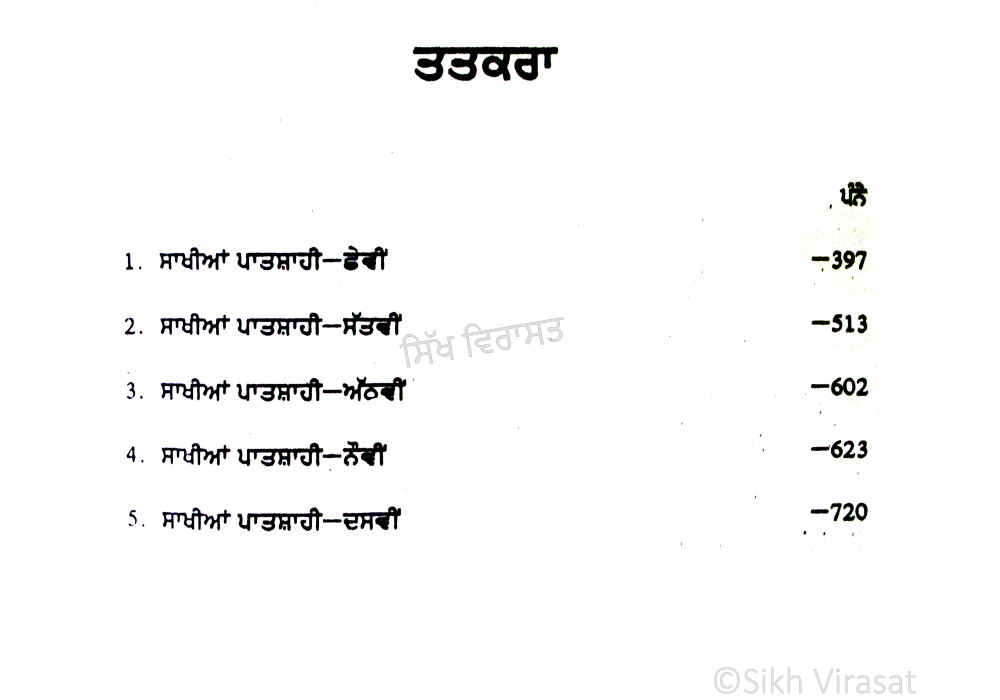 ਤਤਕਰਾ
ਪੰਨੈ
1. ਸਾਖੀਆਂ ਪਾਤਸ਼ਾਹੀ—ਛੇਵੀਂ —397
2. ਸਾਖੀਆਂ ਪਾਤਸ਼ਾਹੀ—ਸੱਤਵੀਂ —513
ਸਿੱਖ ਵਿਰਾਸਤ
3. ਸਾਖੀਆਂ ਪਾਤਸ਼ਾਹੀ—ਅੱਠਵੀਂ —602
4. ਸਾਖੀਆਂ ਪਾਤਸ਼ਾਹੀ—ਨੌਵੀਂ —623
5. ਸਾਖੀਆਂ ਪਾਤਸ਼ਾਹੀ—ਦਸਵੀਂ —720
©Sikh Virasat